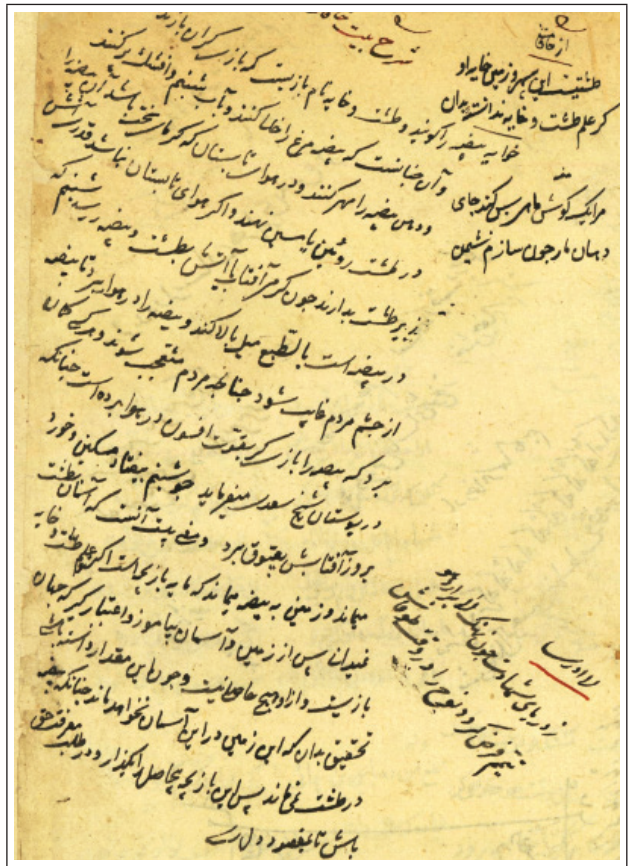 شرح بیت خاقانی
از خاقانی
طشتیست این سپهر و زمین خایه او
کر علم طشت و خایه ندانسته بدان
خوایه بیضه را کویند و طشت و خایه نام بازیست که بازیکران بازند
و آن چنانست که بیضه مرغ را خالی کنند و بآب شبنم و افشک پر کنند
و دهن بیضه را مهر کنند و در هوای تابستان که کرمای سخت باشد آن بیضه را
در طشت روئین یا مسین نهند و اکر هوای تابستان نباشد قدری آتش
بزیر طشت بدارند چون کرمی آفتاب یا آتش بطشت و بیضه رسد شبنم که
در بیضه است بالطبع میل بالا کند و بیضه را در هوا برد تا بیضه
از چشم مردم غایب شود چنانچه مردم متعجب شوند و هر کس کمان
برد که بیضه را بازیکر بقوت افسون در هوا برده است چنانکه
در بوستان شیخ سعدی میفرماید چو شبنم بیفتاد مسکین و خورد
بروز آفتابش بعیوق برد و معنی بیت آنست که آسمان بطشت
میماند و زمین به بیضه میماند که مایه بازیچه است اکر علم طشت و خایه
نمیدانی پس از زمین و آسمان بیاموز و اعتبار کیر که جهان
بازیست و از او هیچ حاصلی نیست و چون این مقدار دانسته باشی
تحقیق بدان که این زمین در این آسمان نخواهد ماند چنانکه بیضه
در طشت نمی ماند پس این بازیچه بیحاصل را بکذار و در طلب معرفت حق
باش تا بمقصود دل رسی
مرا یک کوش ماهی بس کند جای
دهان مار چون سازم نشیمن
لا ادری